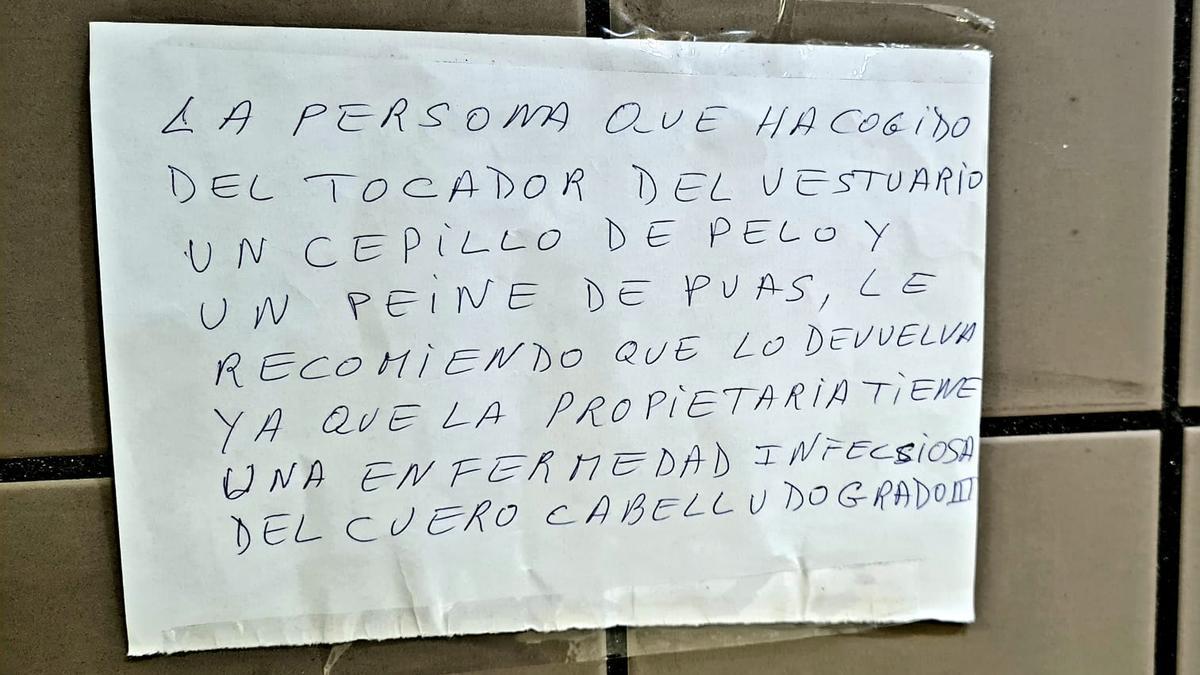 LA PERSONA QUE HA COGIDO
DEL TOCADOR DEL VESTUARIO
UN CEPILLO DE PELO Y
UN PEINE DE PUAS, LE
RECOMIENDO QUE LO DEVUELVA
YA QUE LA PROPIETARIA TIENE
UNA ENFERMEDAD INFECSIOSA
DEL CUERO CABELLUDO GRADO III